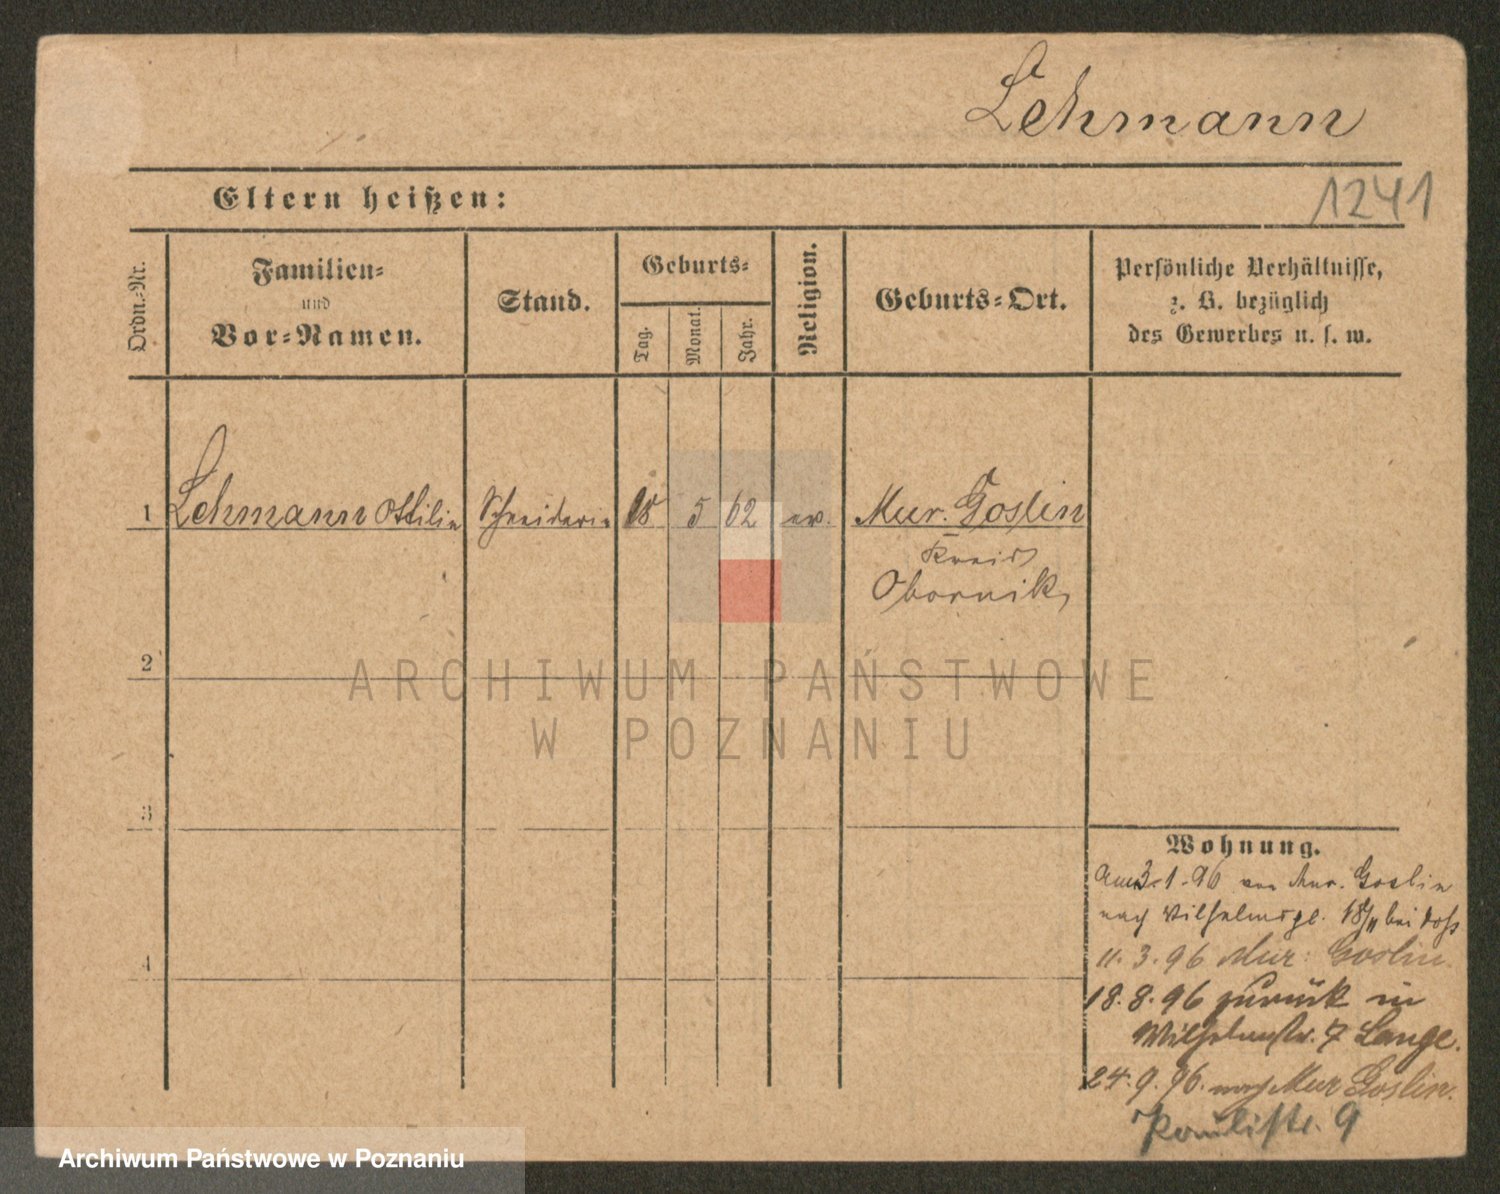 Lehmann
Eltern heißen:
1241
Ordn.-Nr.
Familien-
und
Vor-Namen.
Stand.
Geburts-
Tag.
Monat.
Jahr.
Religion.
Geburts-Ort.
Persönliche Verhältnisse,
z. B. bezüglich
des Gewerbes u. s. w.
1 Lehmann Ottilie Schneiderin 18 5 62 ev. Mur. Goslin
Kreis
Obornik
2
ARCHIWUM PAŃSTWOWE
W POZNANIU
3
4
Wohnung.
Am 3.1.96 von Mur. Goslin
nach Wilhelmspl. 18/II bei
11.3.96 Mur: Goslin.
18.8.96 zurück in
Wilhelmstr. 7 Lange.
24.9.96. nach Mur Goslin.
Paulistr. 9
Archiwum Państwowe w Poznaniu